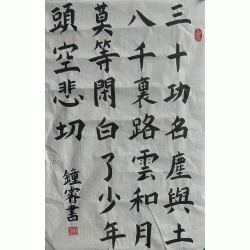 三十功名塵與土
八千裏路雲和月
莫等閑白了少年
頭空悲切
鐘睿書